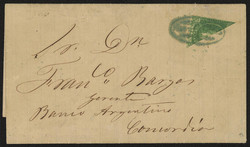 Sr. Dn
Franco. Barzos
Gerente
Banco Argentino
Concordia